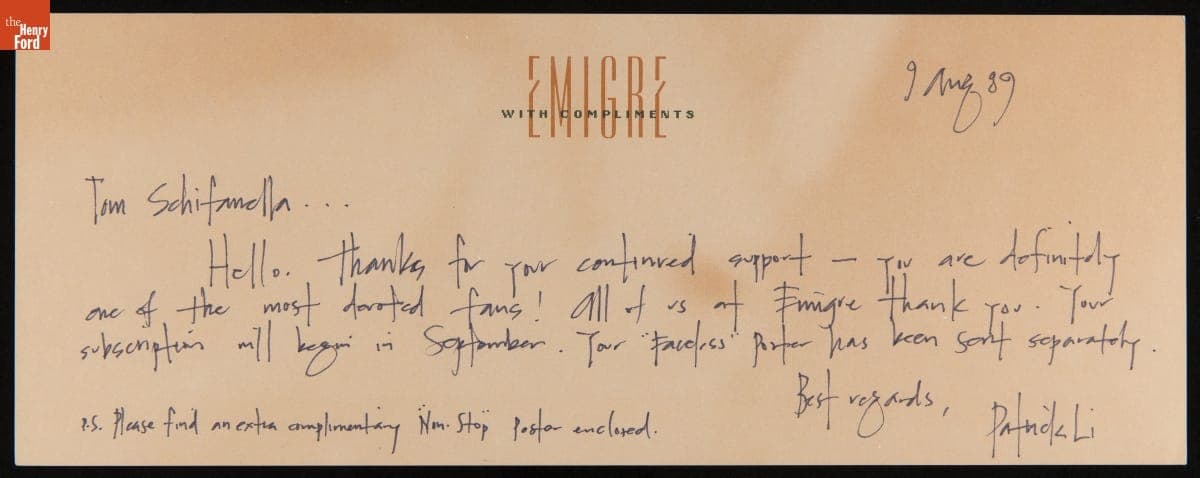 the
Henry
Ford
EMIGRE
WITH COMPLIMENTS
9 Aug 89
Tom Schifanella...
Hello. Thanks for your continued support – you are definitely
one of the most devoted fans! All of us at Emigre thank you. Your
subscription will begin in September. Your "Faceless" Poster has been sent separately.
Best regards,
Patrick Li
P.S. Please find an extra complimentary "Non-Stop" Poster enclosed.